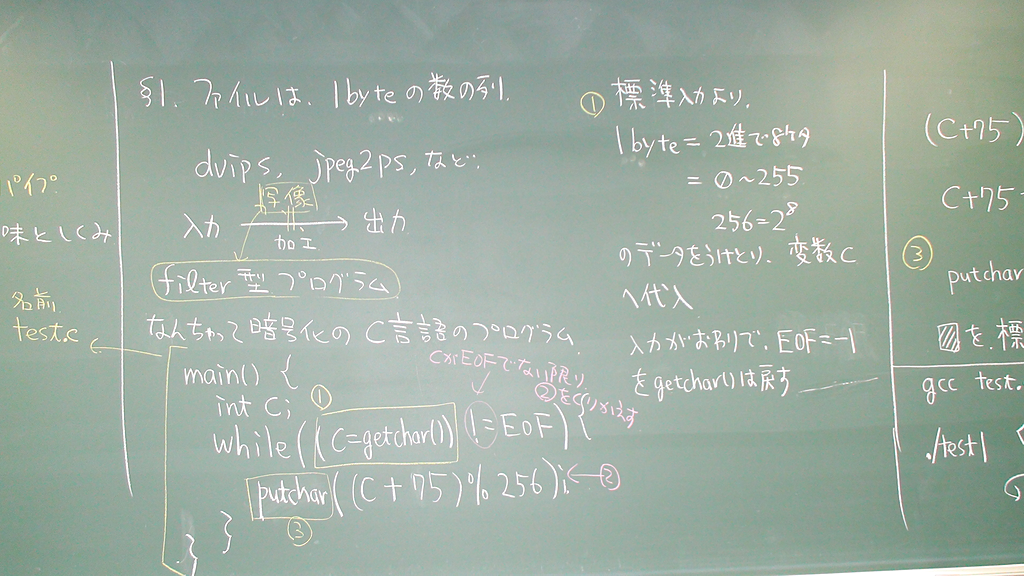 パイプ
味としくみ
名前
test.c
§1. ファイルは、1byteの数の列.
dvips, jpeg2ps, など.
写像
入力 → 出力
加工
filter型プログラム
なんちゃって暗号化のC言語のプログラム.
main() {
int C;
CがEOFでない限り
②をくりかえす
①
while((C=getchar()) != EOF) {
putchar((C+75)%256); ←②
③
}
}
① 標準入力より,
1byte = 2進で8ケタ
= 0~255
256=2^8
のデータをうけとり、変数C
へ代入
入力がおわりで、EOF=-1
をgetchar()は戻す
(C+75)
C+75
③
putchar
を標
gcc test.
./test1